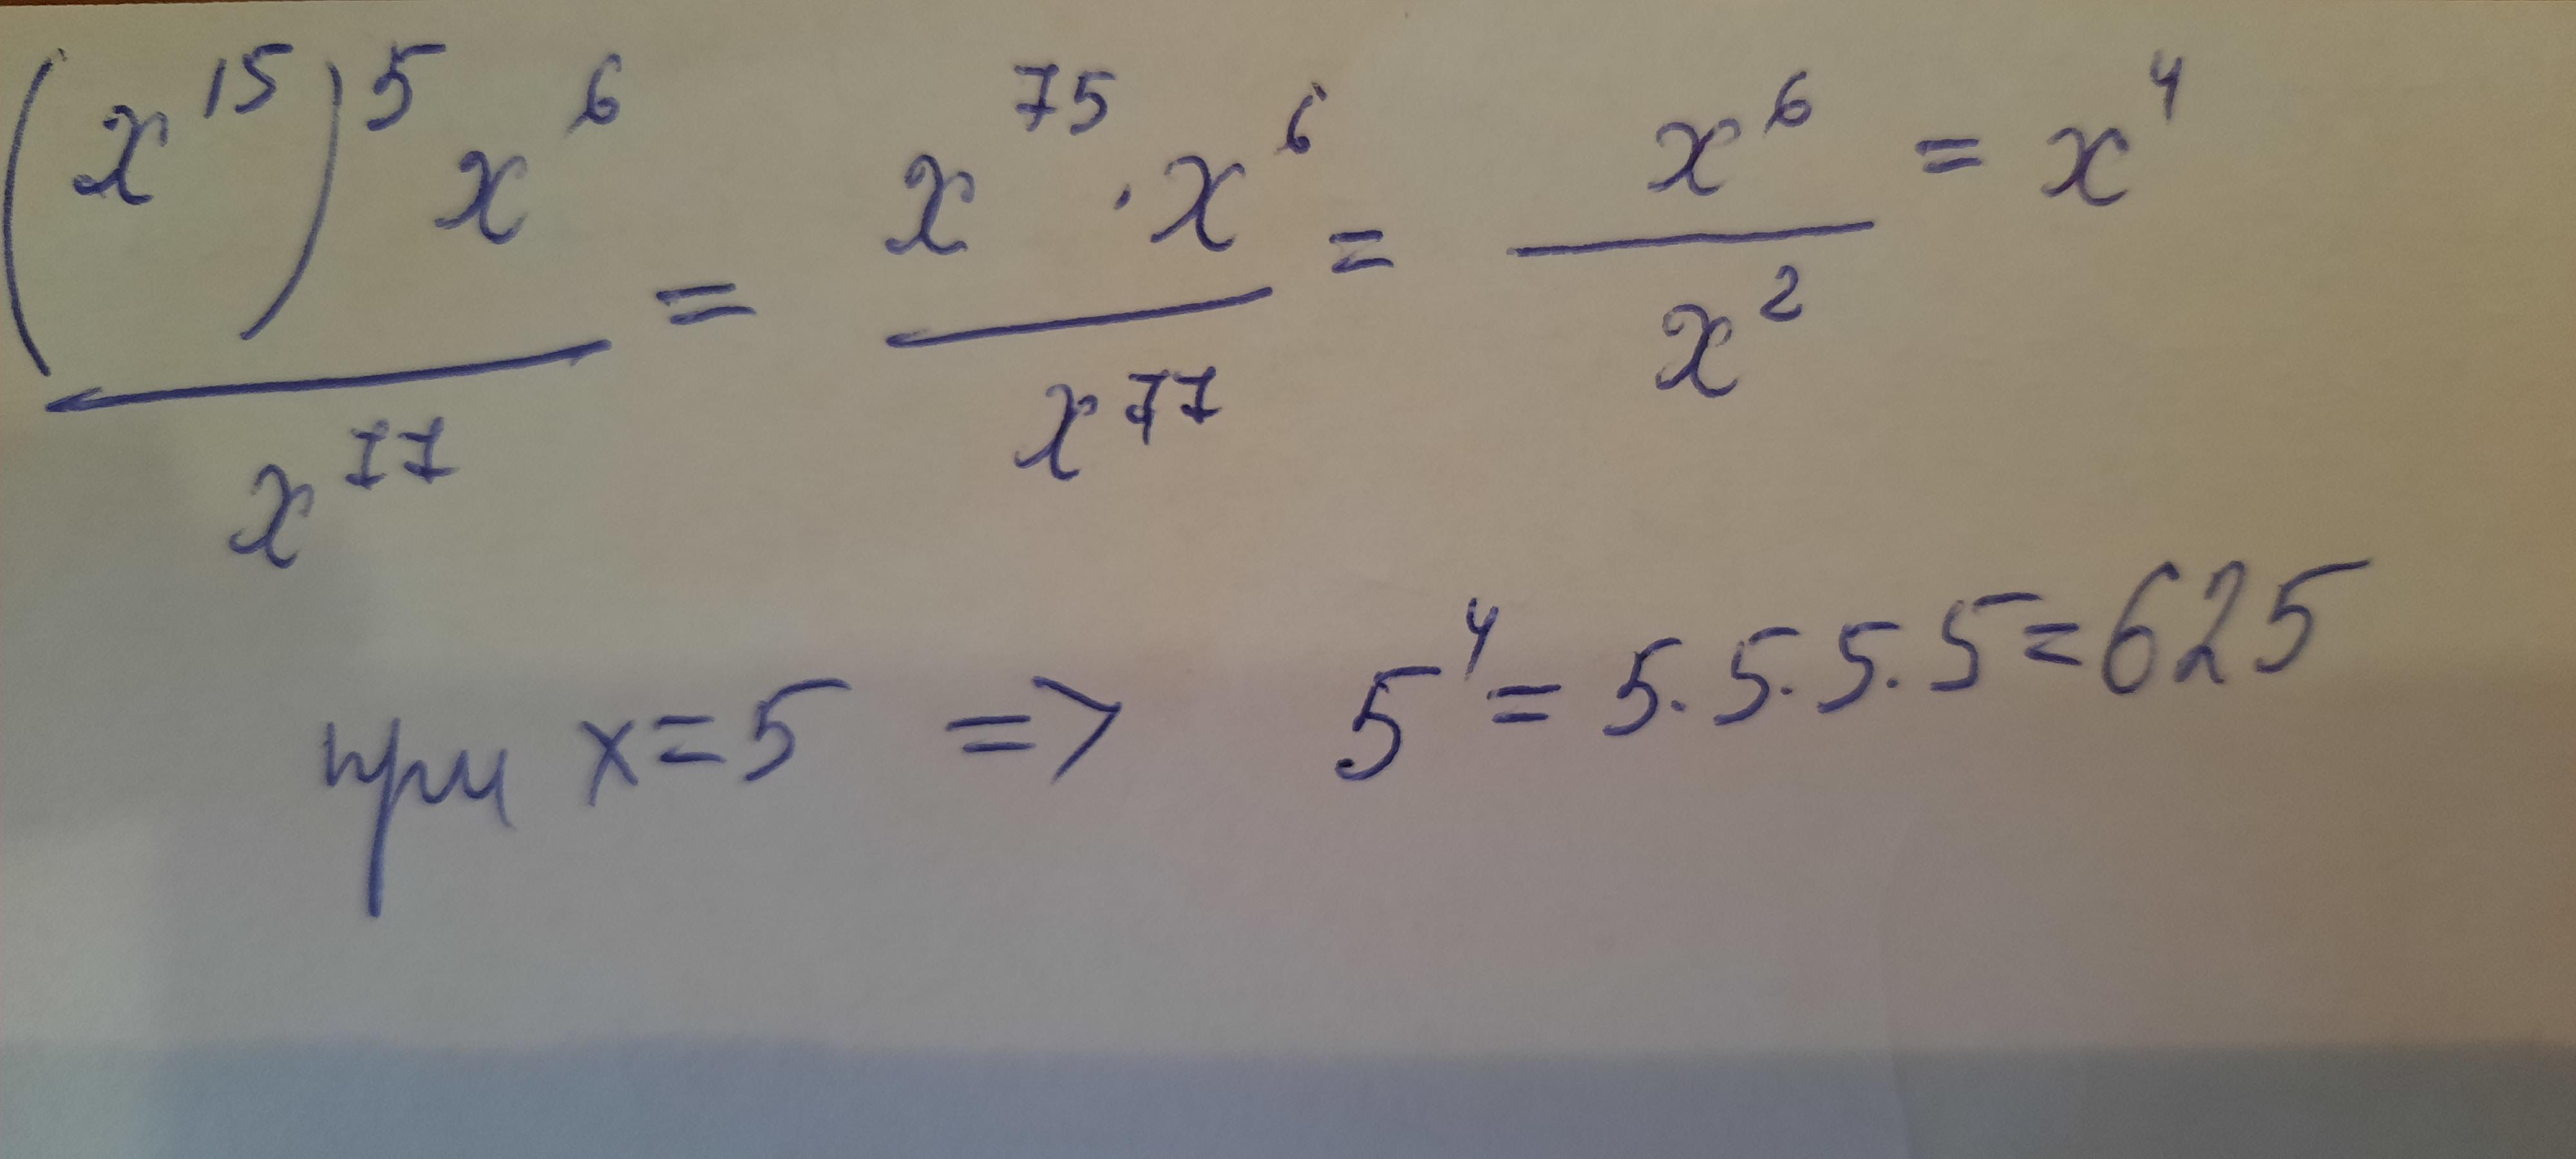 (x^15)^5 x^6 / x^77 = x^75 · x^6 / x^77 = x^6 / x^2 = x^4
при x=5 => 5^4 = 5·5·5·5=625